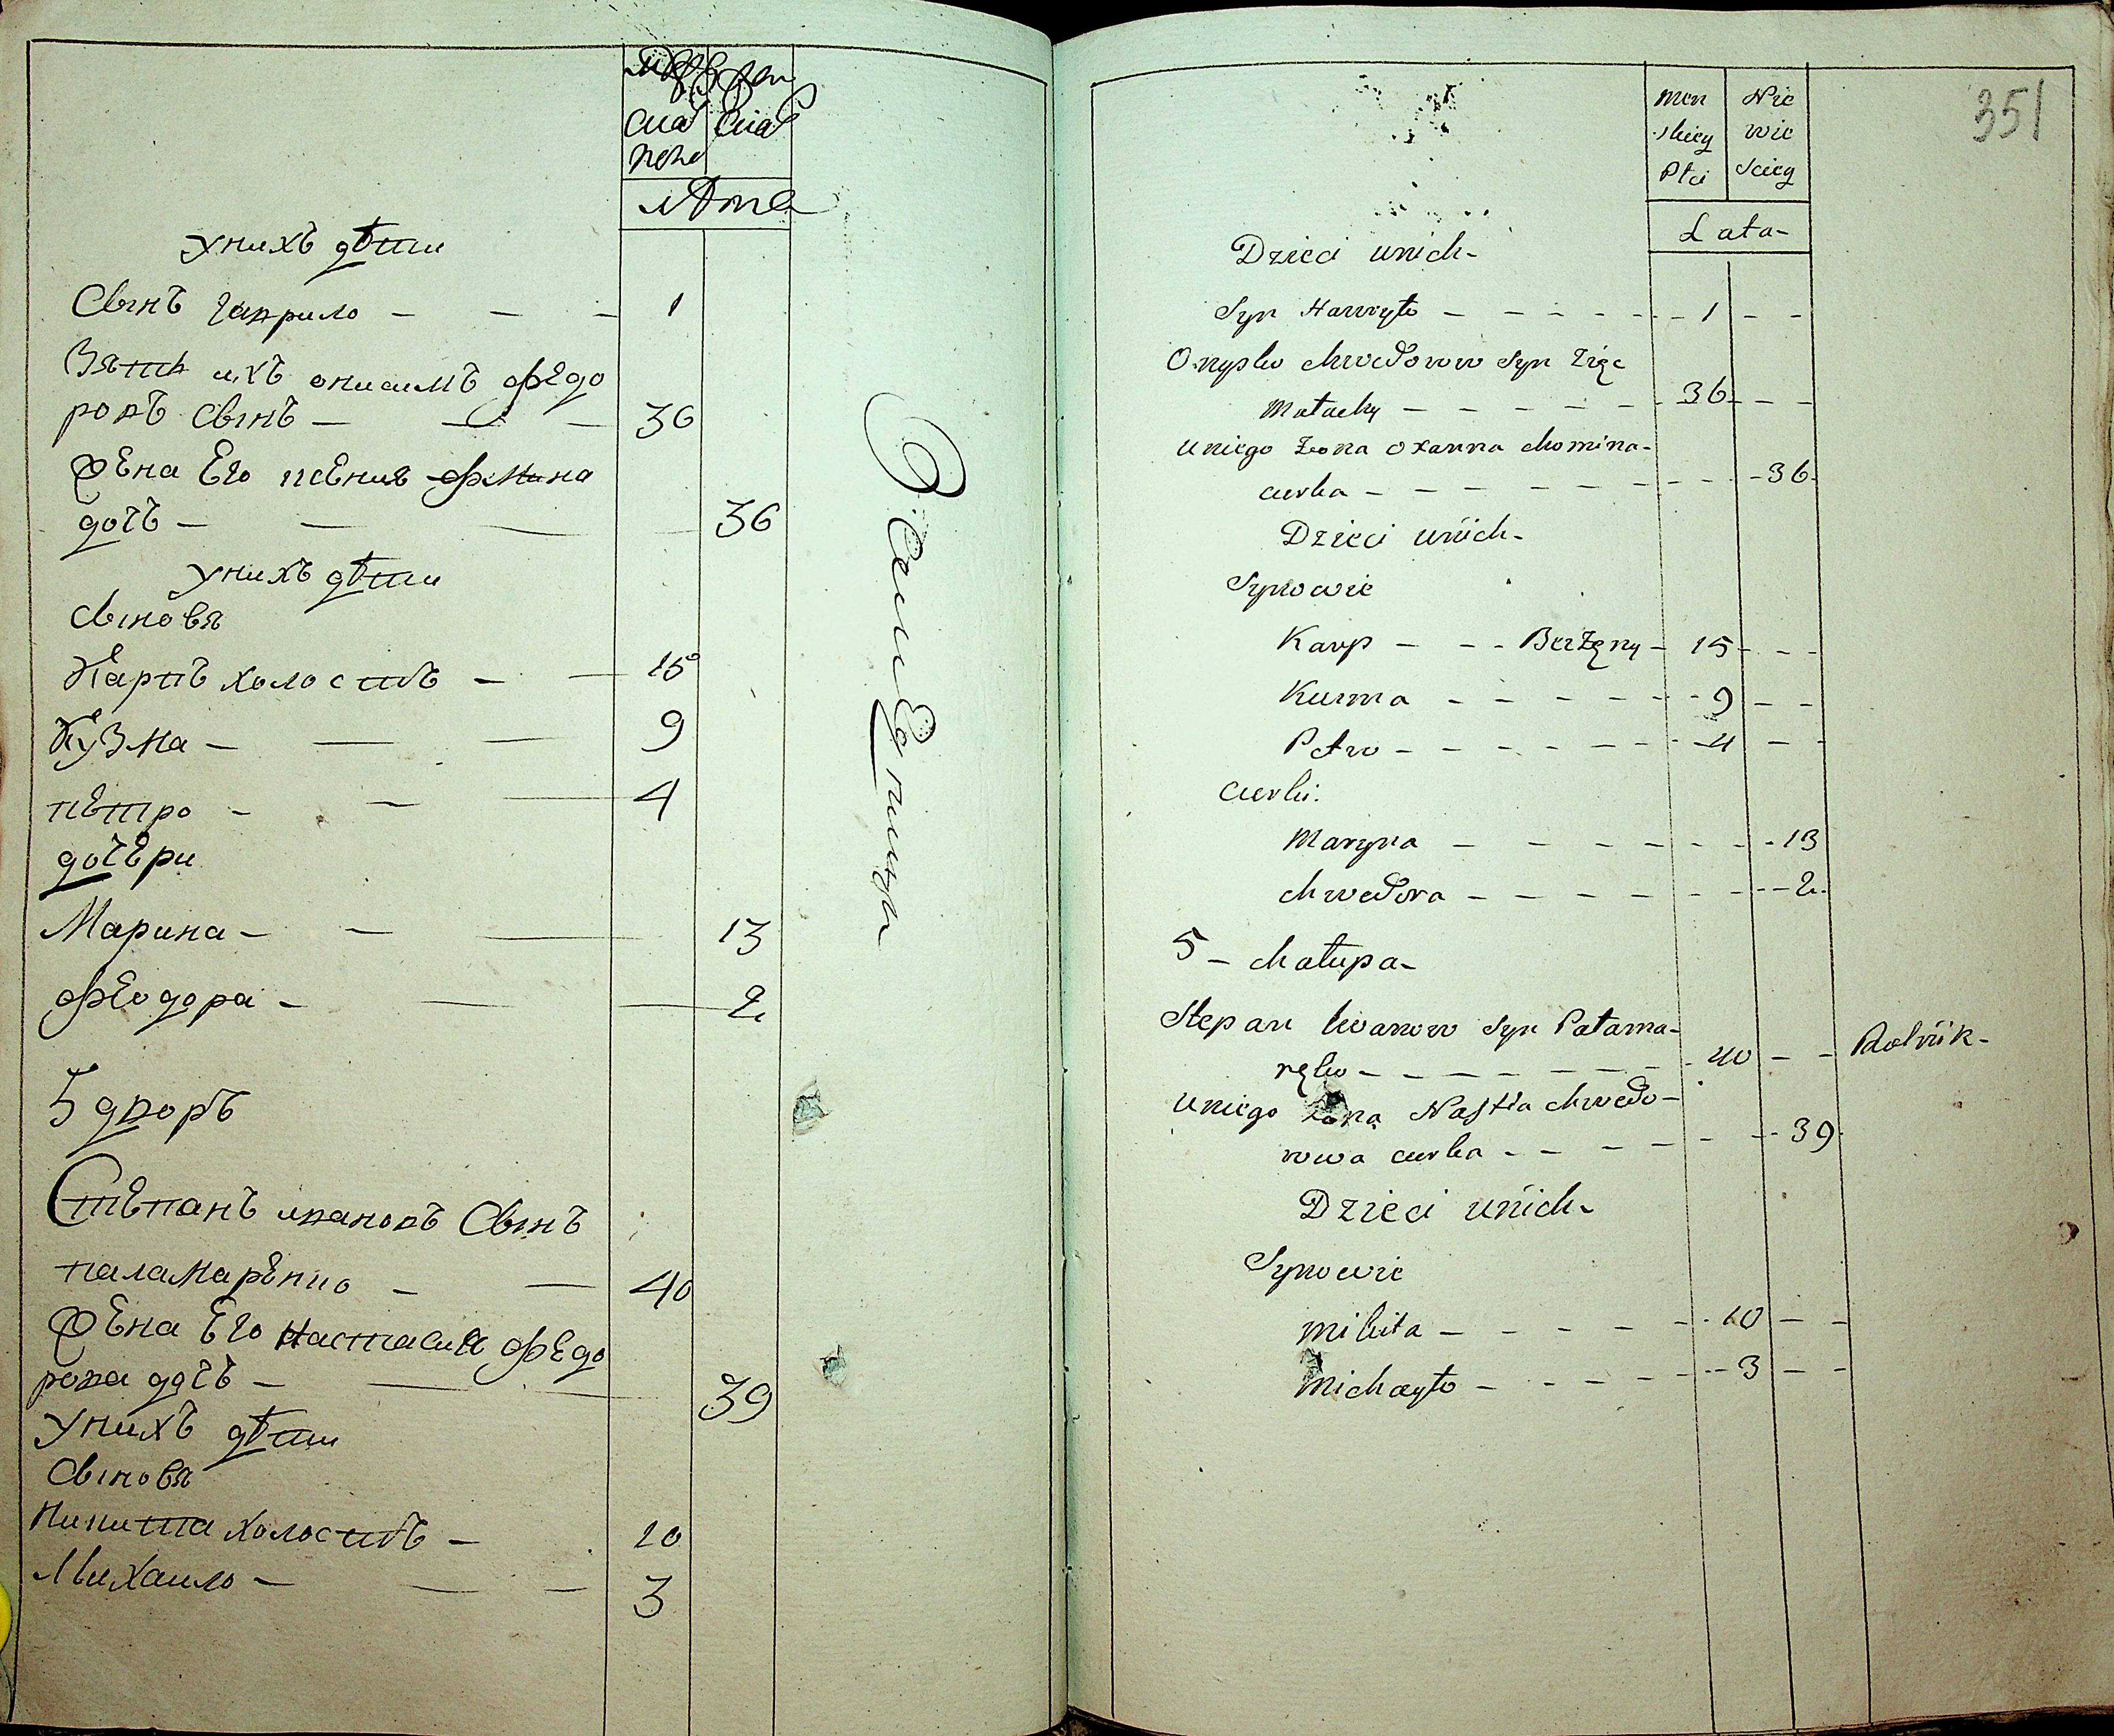 Муж
ска
пола
Жен
ска
Лѣта
у них дѣти
Сынъ гаврило — — — 1
Зять ихъ онисимъ федо
ровъ сынъ — — — 36
жена его ксения фомина
дочь — — — 36
у нихъ дѣти
сыновя
Карпъ холостъ — — 15
Кузма — — — 9
петро — — — 4
дочери
Марина — — — 13
феодора — — — 2
5 дворъ
Степанъ ивановъ сынъ
паламаренко — — 40
жена его настасия федо
рова дочь — — — 39
у нихъ дѣти
сыновя
никита холостъ — 10
Михаило — — — 3
351
Men
skiey
Płci
Nie
wie
Sciey
Lata
Dzieci unich
Syn Hawryło — — — 1 — —
Onysko Chwedorow Syn Zięc
Matachy — — — 36 — —
uniego Zona Oxanna Chomina
curka — — — 36
Dzieci unich
Synowie
Karp — — Berżęny — 15 — —
Kuzma — — — 9 — —
Petro — — — 4 — —
Curki:
Maryna — — — 13
Chwedora — — — 2
5 — Chałupa
Stepan Iwanow Syn Pałama
ręko — — — 40 — — Rolnik
uniego Zona Nastia Chwedo
rowa curka — — — 39
Dzieci unich
Synowie
Mikita — — — 10 — —
Michayło — — — 3 — —